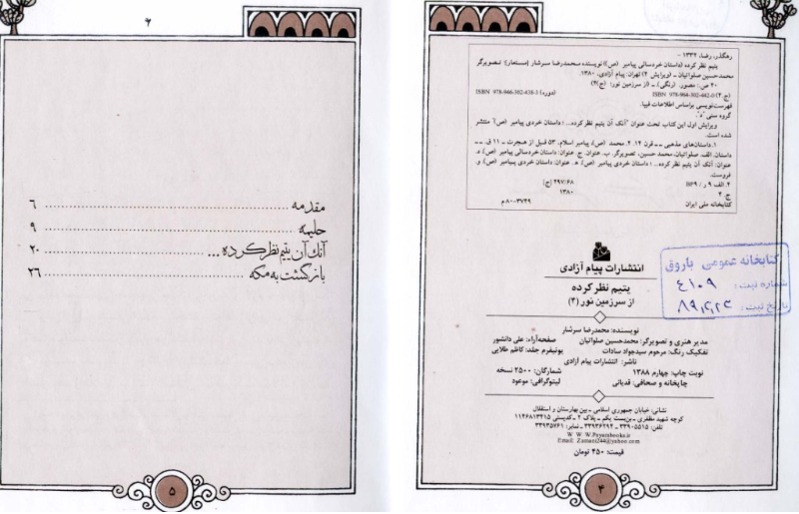 رهگذر، رضا، ۱۳۳۲ -
یتیم نظر کرده (داستان خردسالی پیامبر (ص))/ نویسنده محمدرضا سرشار [مستعار]؛ تصویرگر
محمدحسین صلواتیان - [ویرایش ۲] تهران: پیام آزادی، ۱۳۸۰.
۴۰ ص: مصور. (رنگی) .- (از سرزمین نور؛ [ج] ۴)
ISBN 978-966-302-438-3 (دوره) ISBN 978-964-302-442-0 (ج.۴)
فهرست‌نویسی براساس اطلاعات فیپا.
گروه سنی "د".
ویرایش اول این کتاب تحت عنوان "آنک آن یتیم نظر کرده... : داستان خردی پیامبر (ص)" منتشر
شده است.
۱. داستان‌های مذهبی -- قرن ۱۴. ۲. محمد (ص)، پیامبر اسلام، ۵۳ قبل از هجرت - ۱۱ ق. --
داستان. الف. صلواتیان، محمد حسین، تصویرگر. ب. عنوان. ج. عنوان: داستان خردسالی پیامبر (ص). د.
عنوان: آنک آن یتیم نظر کرده... : داستان خردی پیامبر (ص). ه. عنوان: داستان خردی پیامبر (ص). و.
فروست.
۲. الف ۹ ر / BP۹ ۲۹۷/۶۸ [ج]
ج. ۴ ۱۳۸۰
کتابخانه ملی ایران ۸۰-۳۷۴۹م
انتشارات پیام آزادی
یتیم نظر کرده
از سرزمین نور (۴)
نویسنده: محمدرضا سرشار
مدیر هنری و تصویرگر: محمدحسین صلواتیان صفحه‌آراء: علی دانشور
تفکیک رنگ: مرحوم سیدجواد سادات یونیفرم جلد: کاظم طلایی
ناشر: انتشارات پیام آزادی
نوبت چاپ: چهارم ۱۳۸۸ شمارگان: ۳۵۰۰ نسخه
چاپخانه و صحافی: قدیانی لیتوگرافی: موعود
نشانی: خیابان جمهوری اسلامی - بین بهارستان و استقلال
کوچه شهید مظفری - بن‌بست یکم - پلاک ۲ - کدپستی ۱۱۴۶۸۱۳۴۱۵
تلفن: ۳۳۹۰۵۵۱۵ - ۳۳۹۳۶۲۹۴ - نمابر: ۳۳۹۳۵۷۶۱
W W W.Payambooks.ir
Email: Zamani244@yahoo.com
قیمت: ۴۵۰ تومان
کتابخانه عمومی باروق
شماره ثبت: ۴۱۰۹
تاریخ ثبت:
۴
۶
مقدمه ۶
حلیمه ۹
آنک آن یتیم نظر کرده ... ۲۰
بازگشت به مکه ۲۶
۵